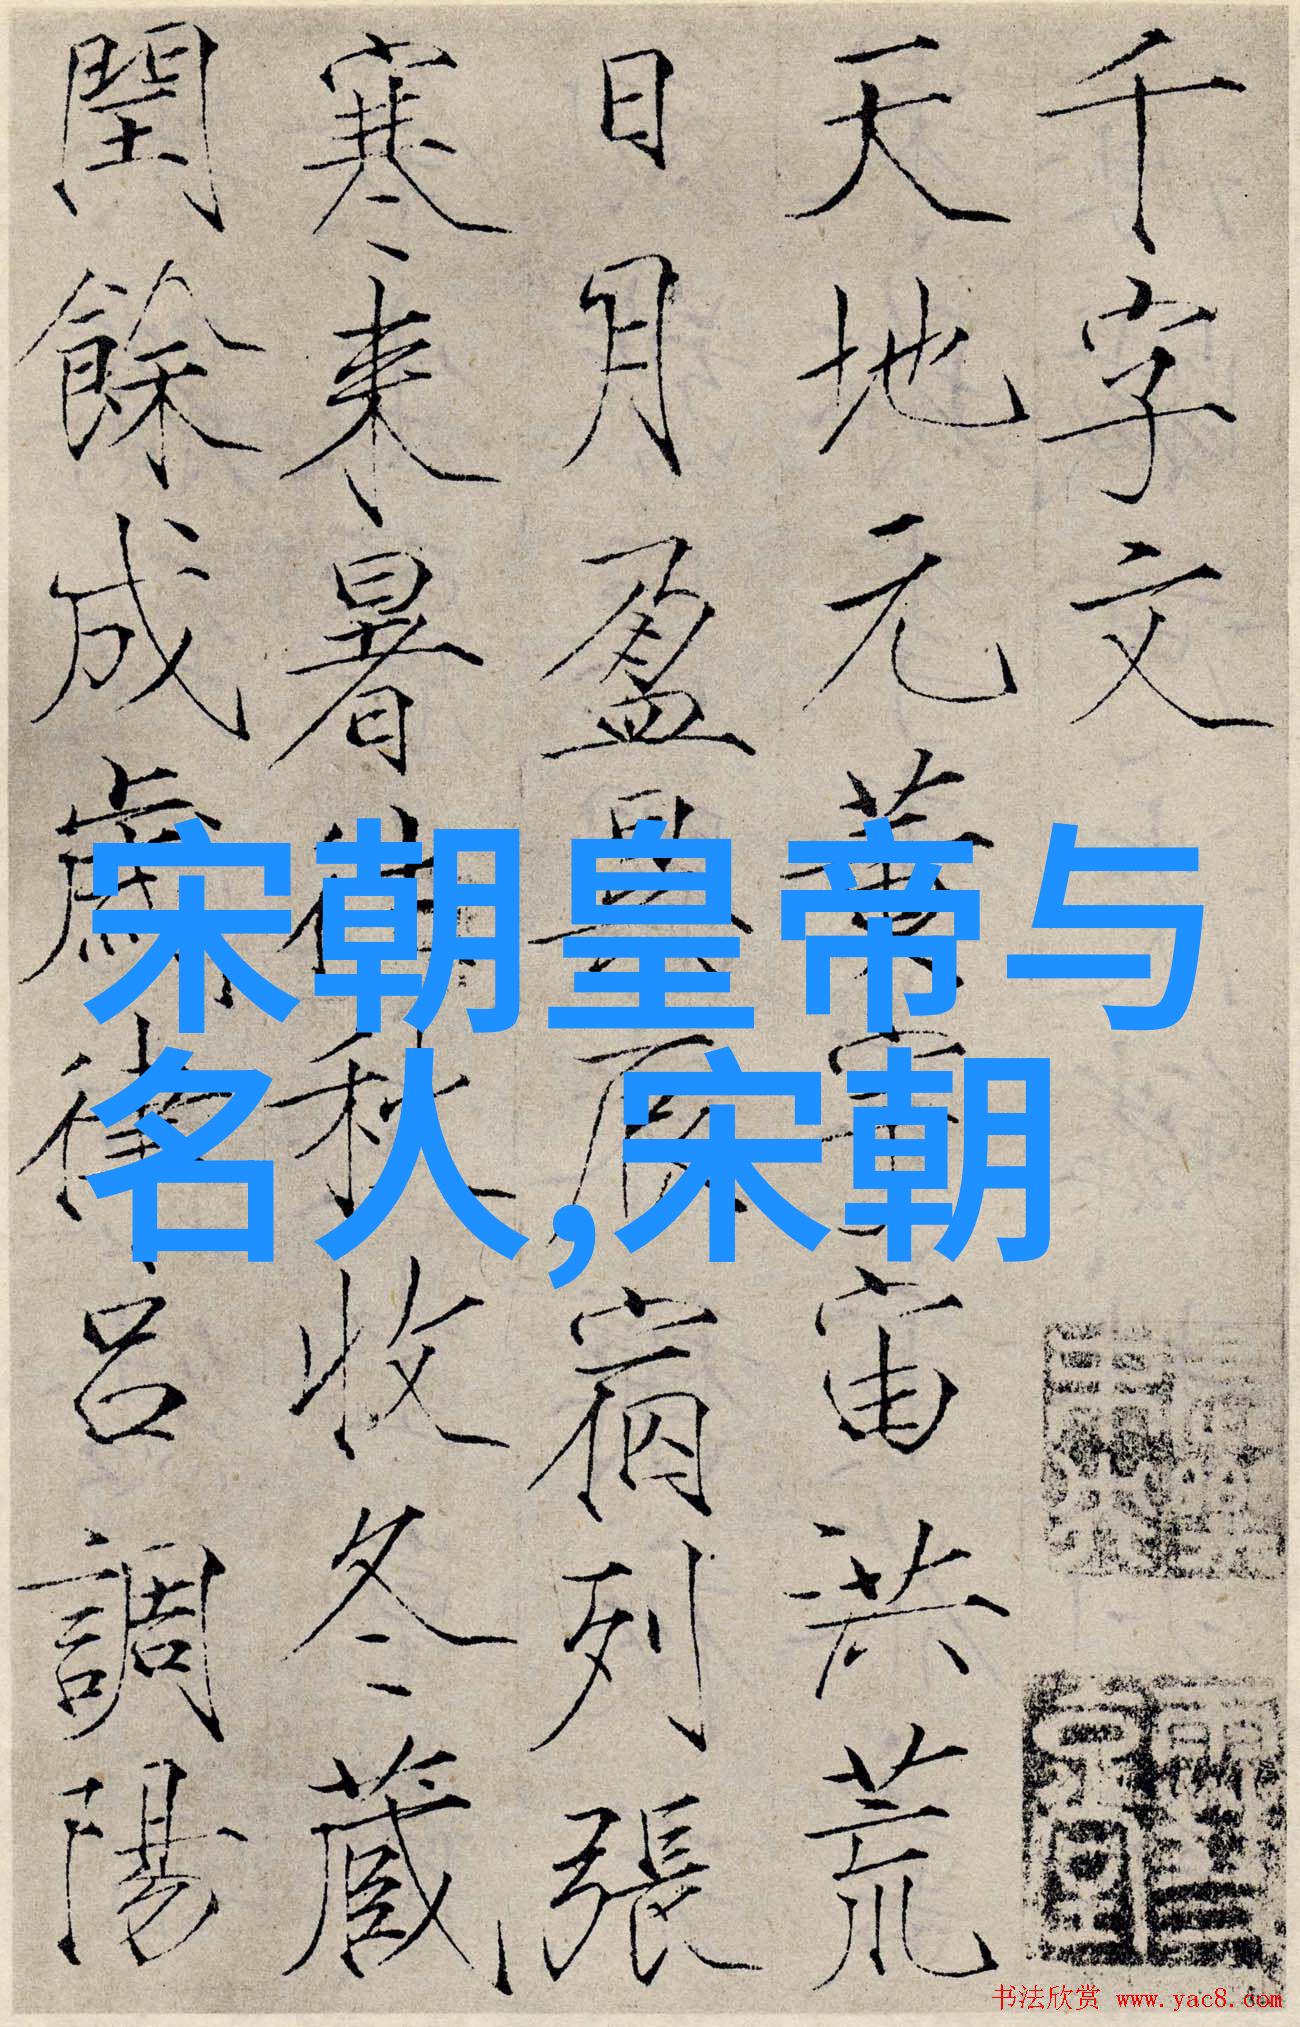 千字文
天地元黃宇宙洪荒
日月盈昃辰宿列張
寒来暑往秋收冬蔵
閏餘成歲律呂調陽
宋朝皇帝与
名人,宋朝
书法欣赏 www.yac8.com